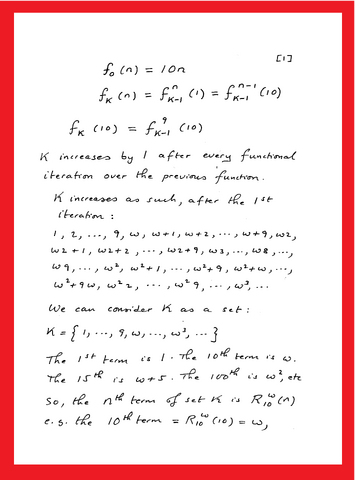 [1]
f₀(n) = 10n
f_K(n) = f^n_{K-1}(1) = f^{n-1}_{K-1}(10)
f_K(10) = f^9_{K-1}(10)
K increases by 1 after every functional
iteration over the previous function.
K increases as such, after the 1st
iteration :
1, 2, ..., 9, ω, ω+1, ω+2, ..., ω+9, ω2,
ω2+1, ω2+2, ..., ω2+9, ω3, ..., ω8, ...,
ω9, ..., ω², ω²+1, ..., ω²+9, ω²+ω, ...,
ω²+9ω, ω²2, ..., ω²9, ..., ω³, ...
We can consider K as a set :
K = { 1, ..., 9, ω, ..., ω³, ... }
The 1st term is 1. The 10th term is ω.
The 15th is ω+5. The 100th is ω², etc
So, the nth term of set K is R^ω_10(n)
e.g. the 10th term = R^ω_10(10) = ω,